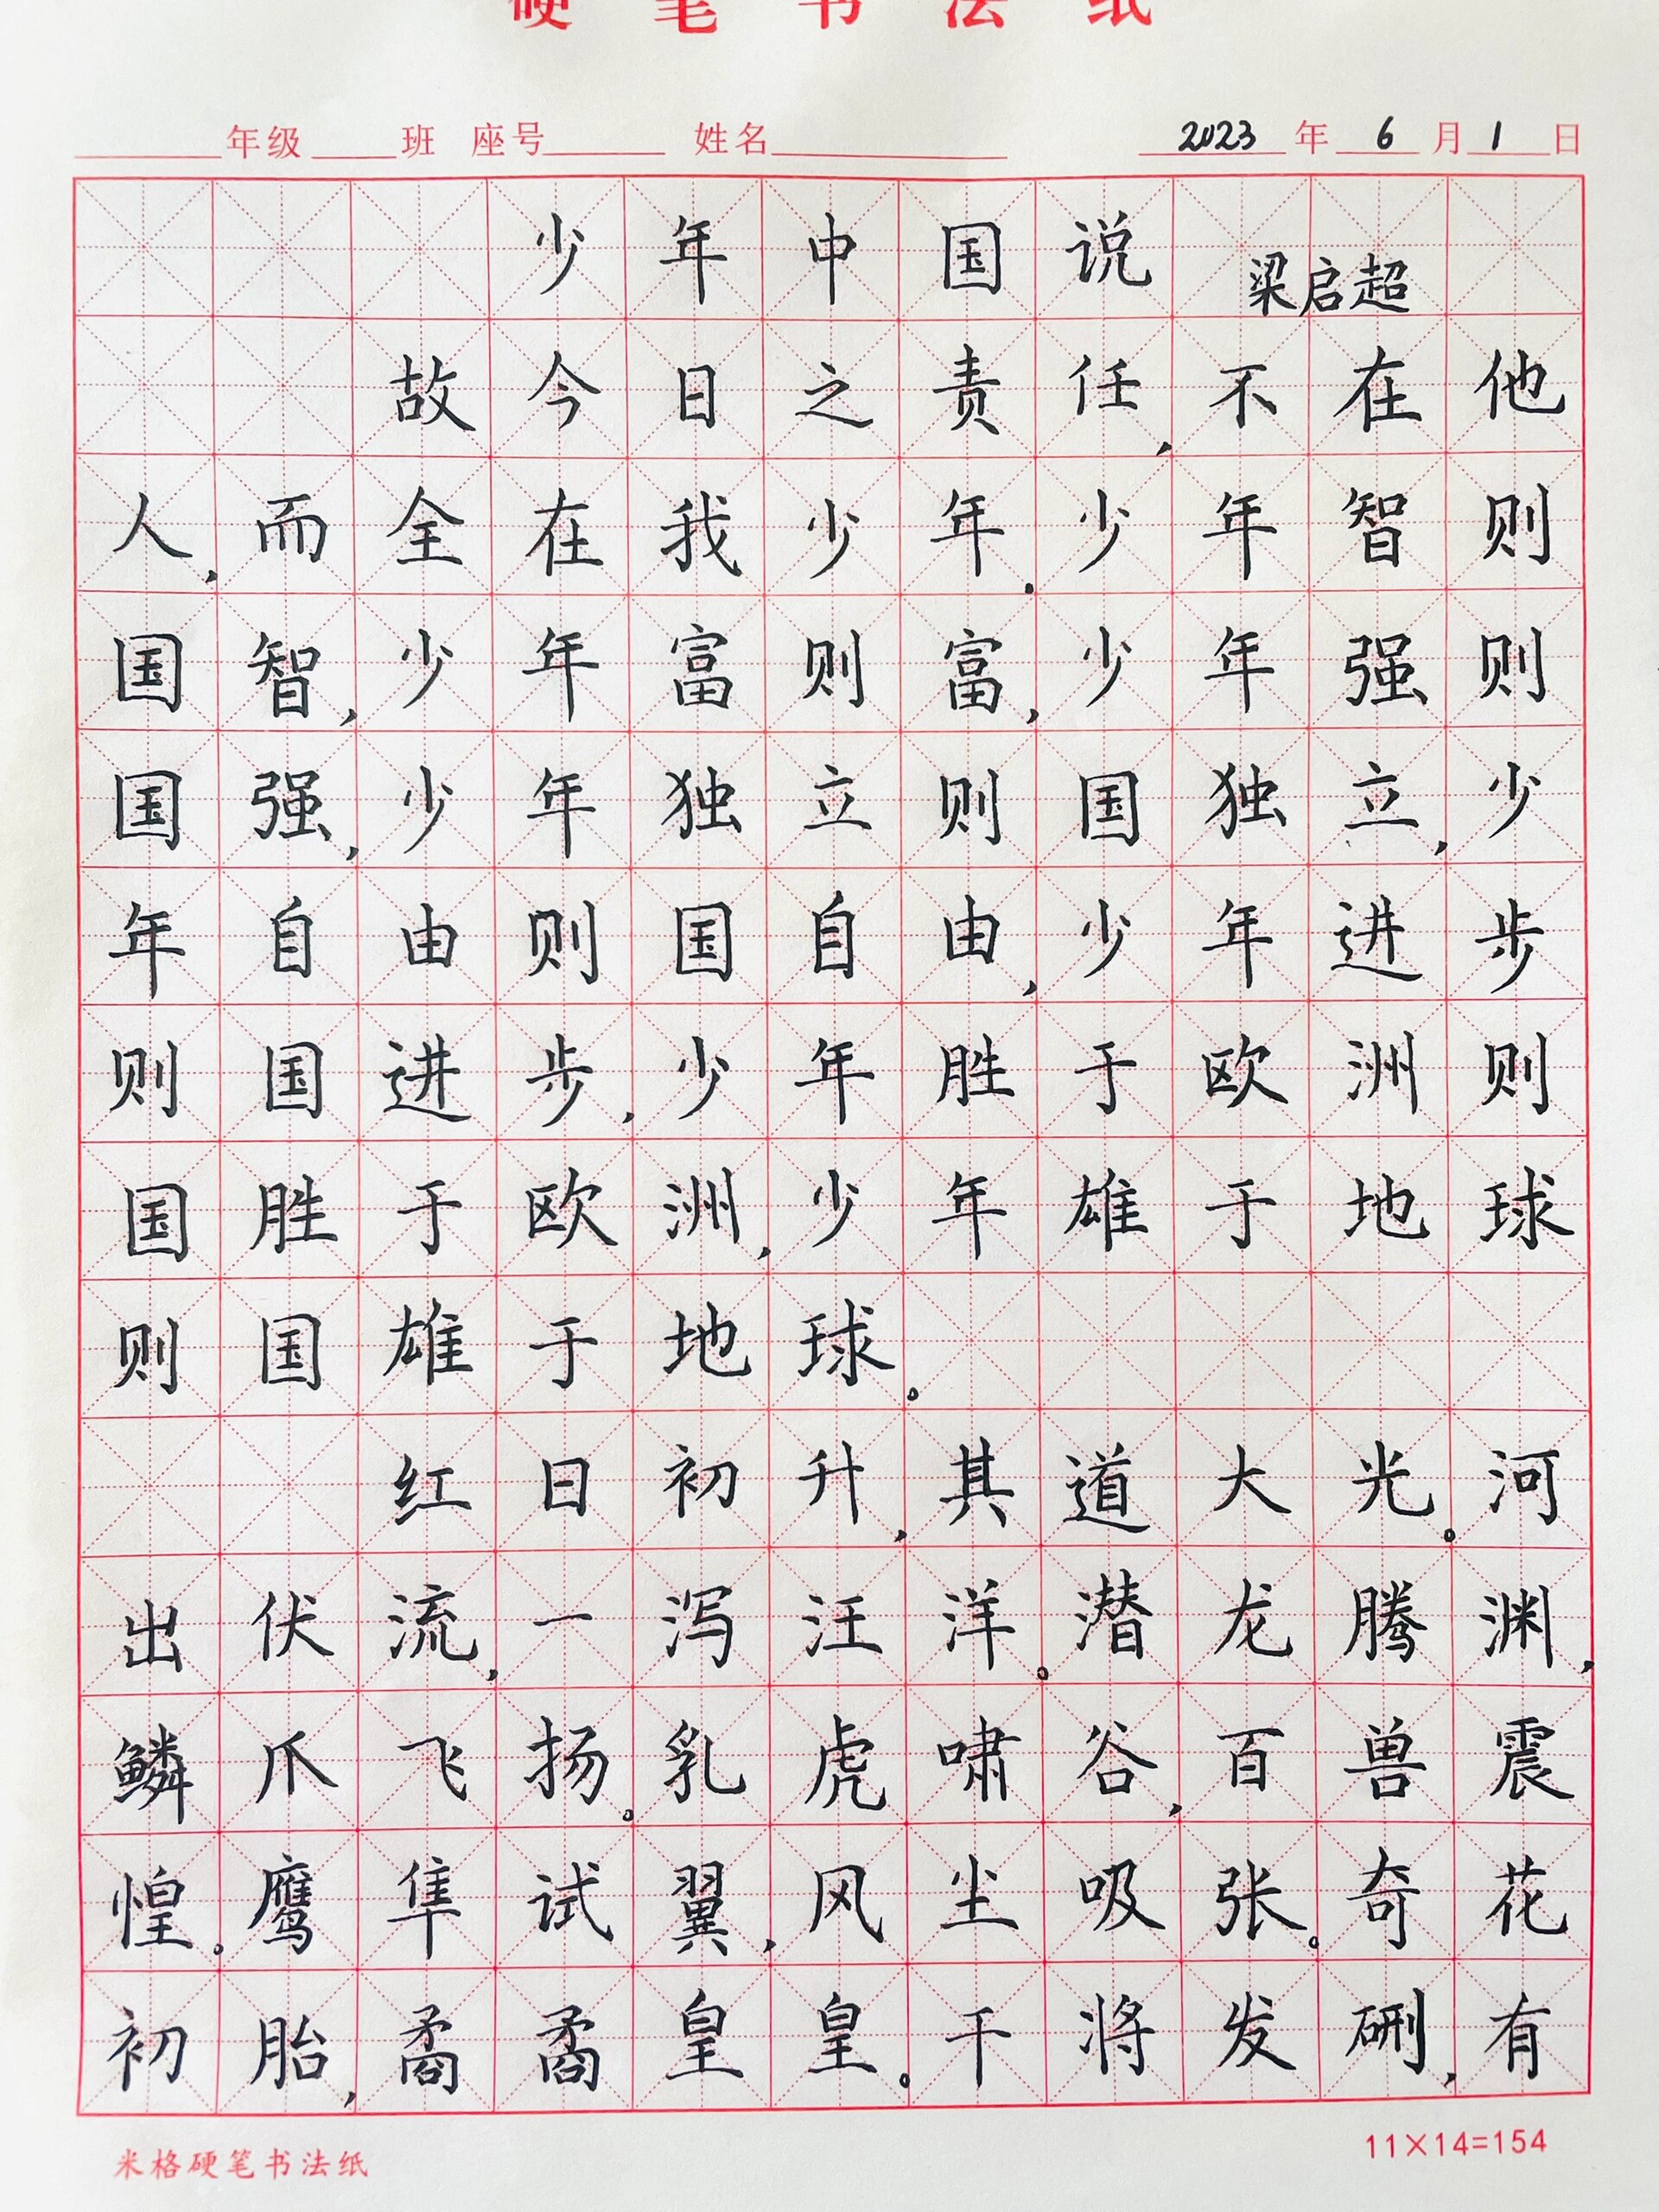 硬笔书法纸
年级 班 座号 姓名 2023年6月1日
少年中国说 梁启超
故今日之责任,不在他
人,而全在我少年.少年智则
国智,少年富则富,少年强则
国强,少年独立则国独立,少
年自由则国自由,少年进步
则国进步,少年胜于欧洲则
国胜于欧洲,少年雄于地球
则国雄于地球。
红日初升,其道大光。河
出伏流,一泻汪洋。潜龙腾渊,
鳞爪飞扬。乳虎啸谷,百兽震
惶。鹰隼试翼,风尘吸张。奇花
初胎,矞矞皇皇。干将发硎,有
米格硬笔书法纸 11×14=154